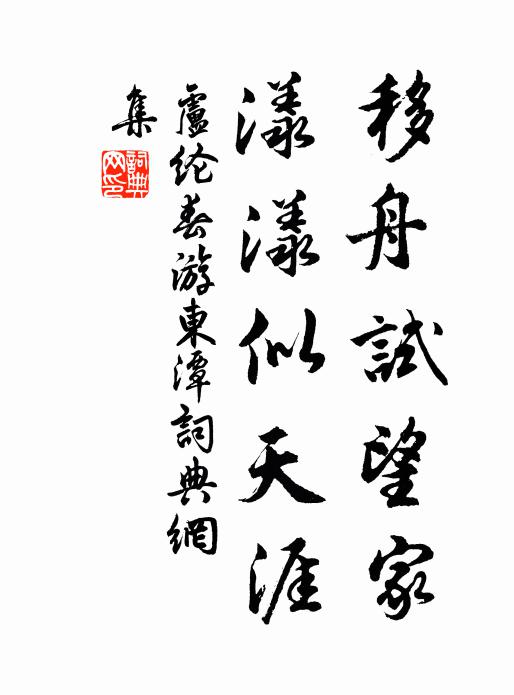 移舟試望家
漾漾似天涯
盧纶春游東潭詞典網
集
詞典
网印